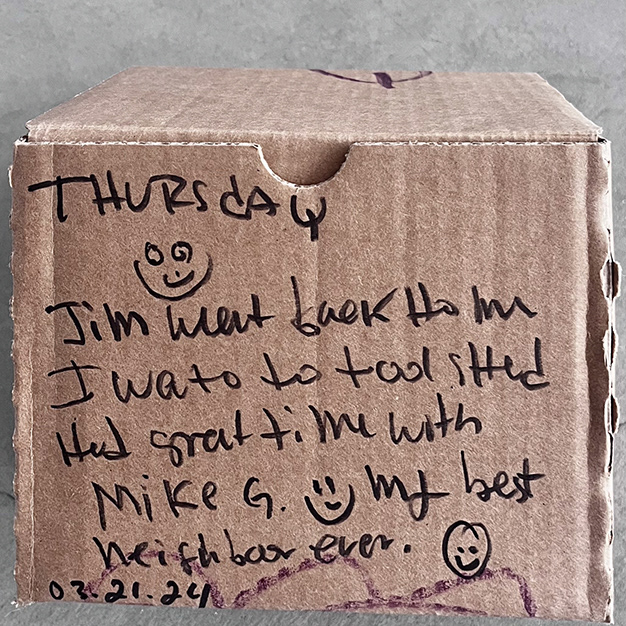 THURSDAY
Jim went back Ho m
I wa to to tool shed
Had great time with
Mike G. My best
neighbor ever.
03.21.24